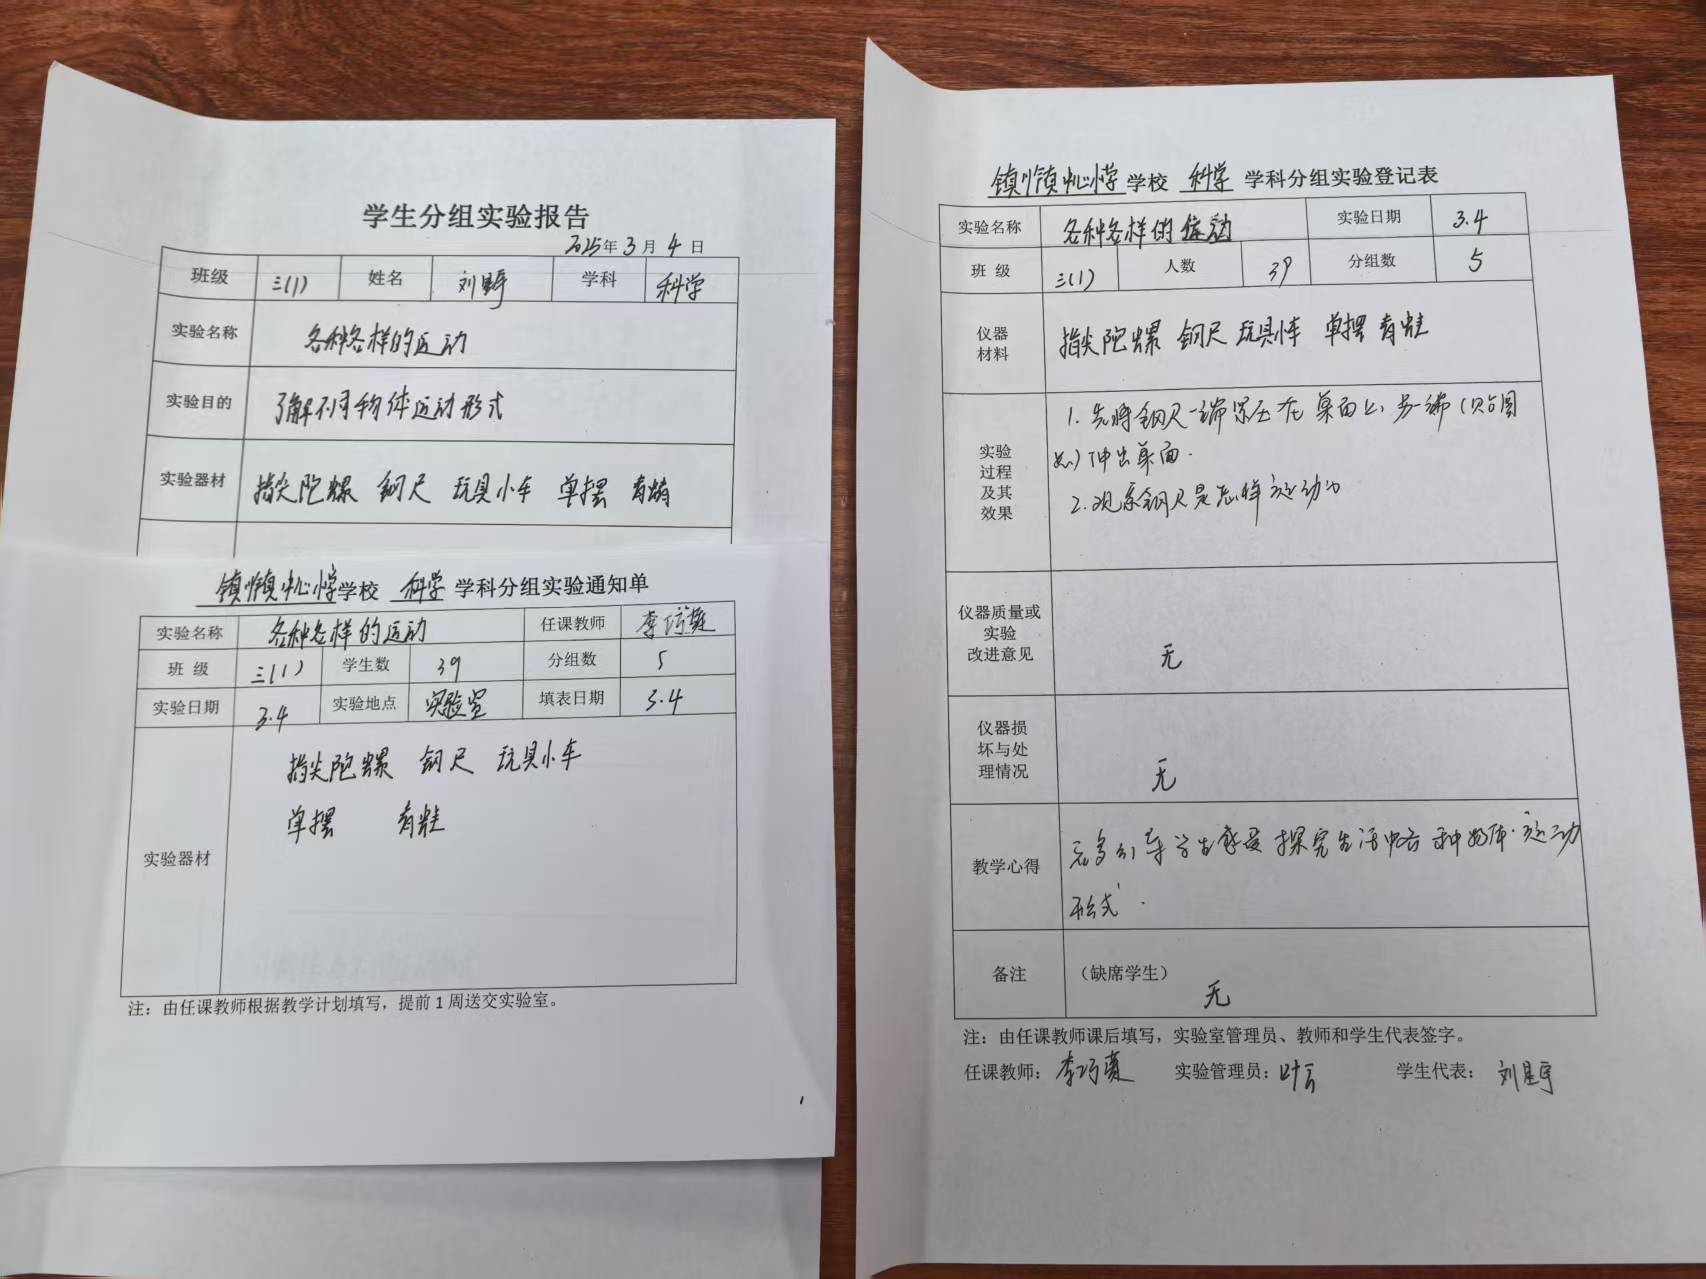 学生分组实验报告
2025年3月4日
班级 三(1) 姓名 刘星宇 学科 科学
实验名称 各种各样的运动
实验目的 了解不同物体运动形式
实验器材 指尖陀螺 钢尺 玩具小车 单摆 青蛙
镇川镇中心小学学校 科学 学科分组实验通知单
实验名称 各种各样的运动 任课教师 李巧
班 级 三(1) 学生数 39 分组数 5
实验日期 3.4 实验地点 实验室 填表日期 3.4
实验器材
指尖陀螺 钢尺 玩具小车
单摆 青蛙
注：由任课教师根据教学计划填写，提前1周送交实验室。
镇川镇中心小学学校 科学 学科分组实验登记表
实验名称 各种各样的运动 实验日期 3.4
班 级 三(1) 人数 39 分组数 5
仪器
材料
指尖陀螺 钢尺 玩具小车 单摆 青蛙
实验
过程
及其
效果
1. 先将钢尺一端紧压在桌面上，另一端（贴圆
点）伸出桌面.
2. 观察钢尺是怎样运动的
仪器质量或
实验
改进意见
无
仪器损
坏与处
理情况
无
教学心得
多引导学生感受探究生活中各种物体运动
形式.
备注 （缺席学生）
无
注：由任课教师课后填写，实验室管理员、教师和学生代表签字。
任课教师：李巧 实验管理员：叶云 学生代表：刘星宇